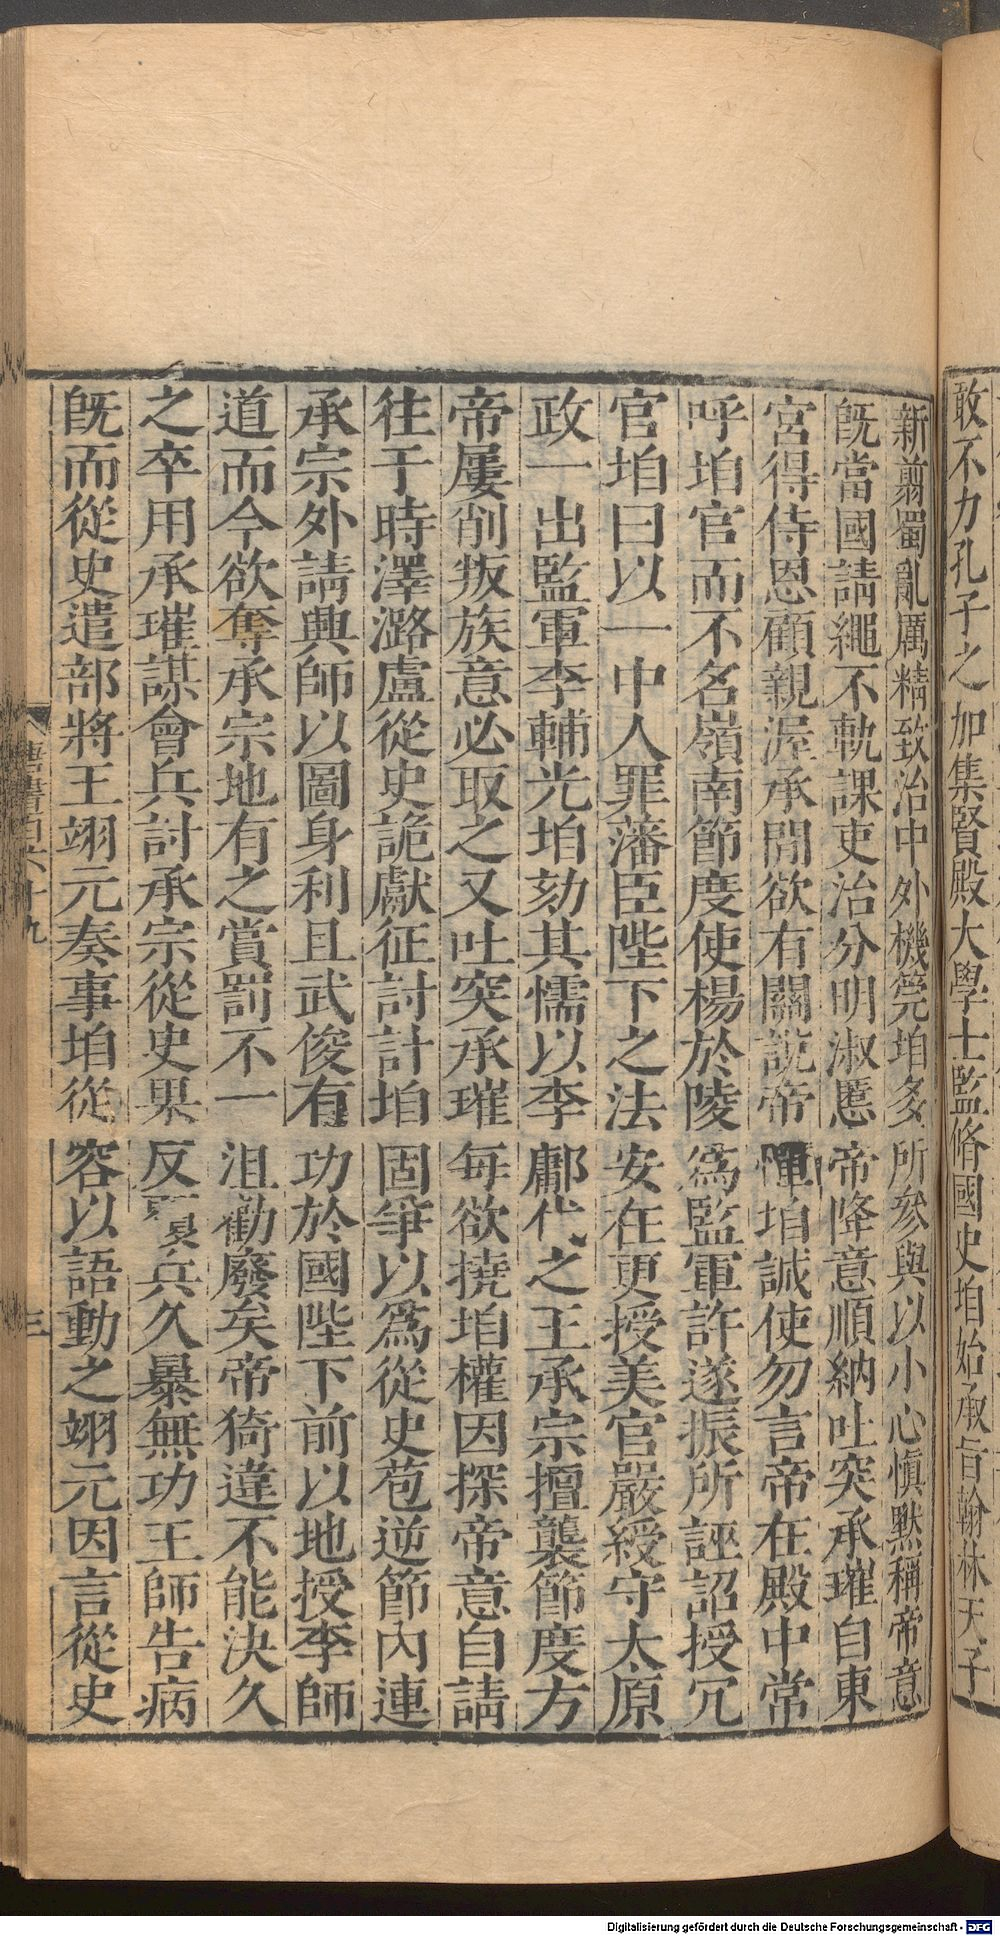 敢不力孔子之加集賢殿大學士監脩國史垍始承旨翰林天子
新翦蜀亂厲精致治中外機筦垍多所參與以小心慎默稱帝意
旣當國請繩不軌課吏治分明淑慝帝降意順納吐突承璀自東
宮得侍恩顧親渥承閒欲有關說帝憚垍誡使勿言帝在殿中常
呼垍官而不名嶺南節度使楊於陵爲監軍許遂振所誣詔授冗
官垍曰以一中人罪藩臣陛下之法安在更授美官嚴綬守太原
政一出監軍李輔光垍劾其懦以李鄘代之王承宗擅襲節度方
帝屢削叛族意必取之又吐突承璀每欲撓垍權因探帝意自請
往于時澤潞盧從史詭獻征討計垍固爭以爲從史苞逆節內連
承宗外請興師以圖身利且武俊有功於國陛下前以地授李師
道而今欲奪承宗地有之賞罰不一沮勸廢矣帝猗違不能決久
之卒用承璀謀會兵討承宗從史果反覆兵久暴無功王師告病
旣而從史遣部將王翊元奏事垍從容以語動之翊元因言從史
唐書百六十九 三
Digitalisierung gefördert durch die Deutsche Forschungsgemeinschaft - DFG